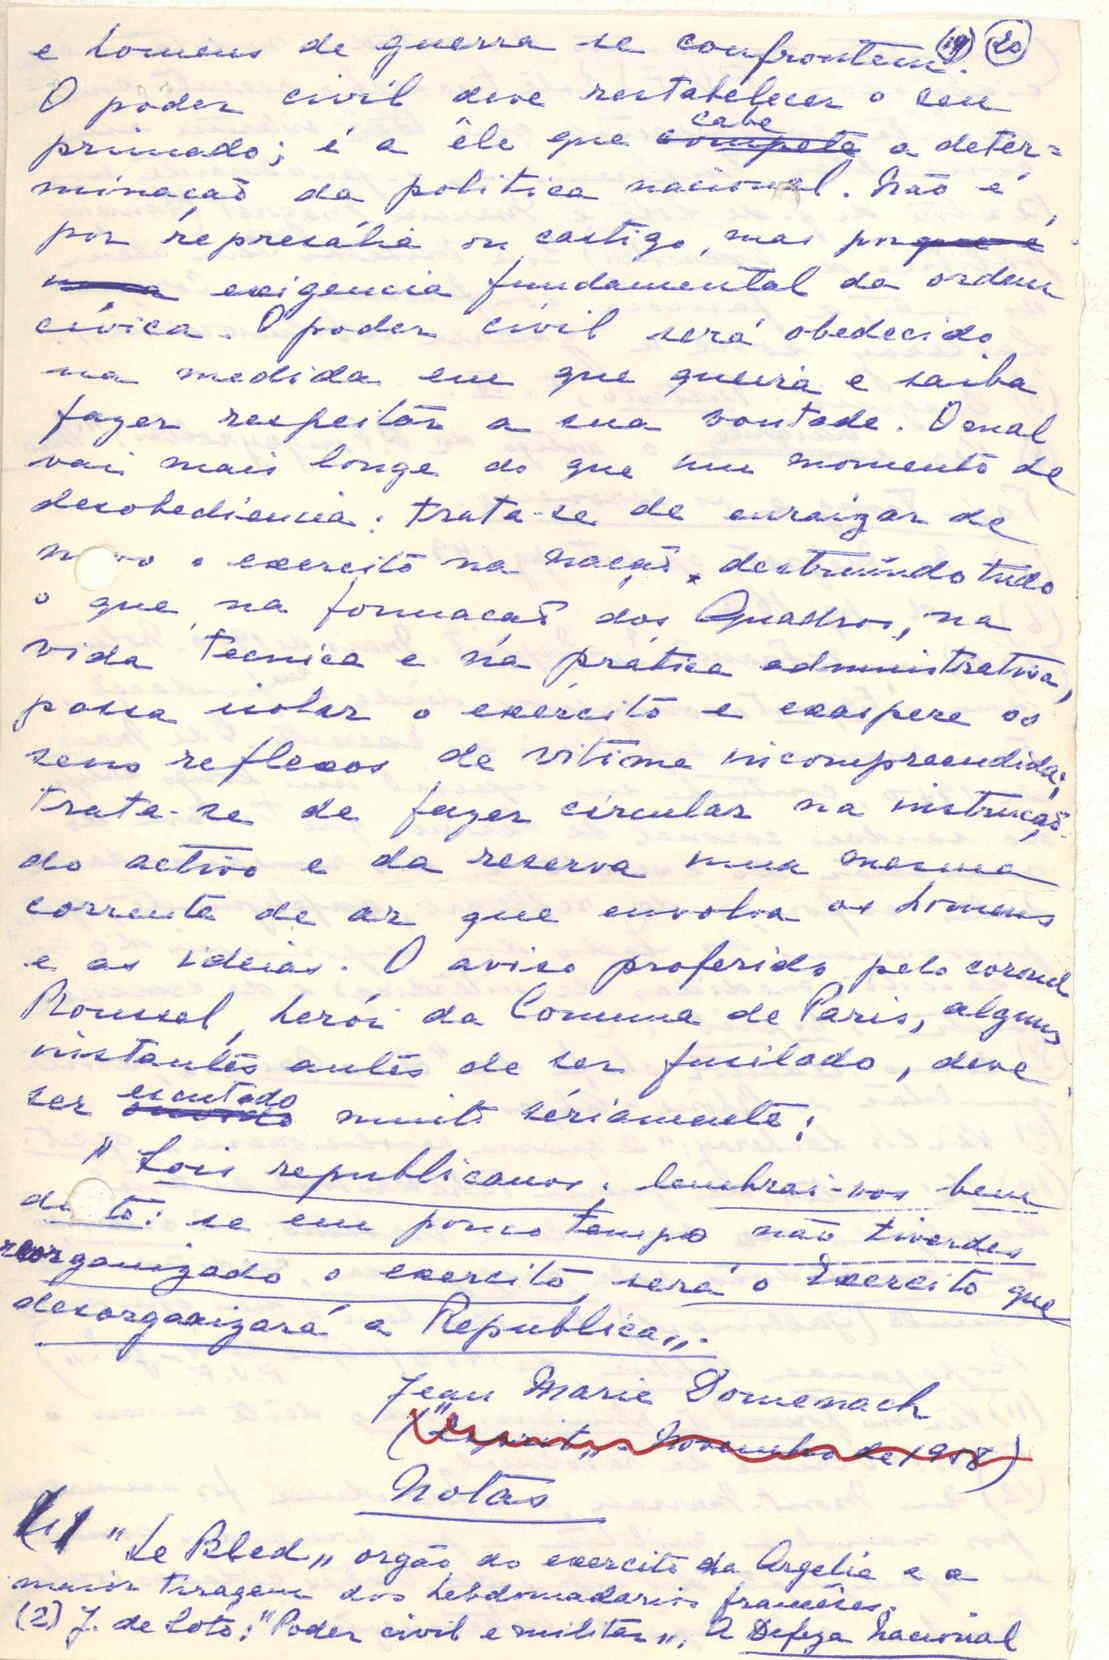 e homens de guerra se confrontem. (19) (20)
O poder civil deve restabelecer o seu
cabe
primado; é a êle que compete a deter=
minação da politica nacional. Não é,
por represália ou castigo, mas porque é
uma exigencia fundamental da ordem
cívica. O poder civil será obedecido
na medida em que queira e saiba
fazer respeitar a sua vontade. O mal
vai mais longe do que um momento de
desobediencia: trata-se de enraizar de
novo o exercito na nação, destruindo tudo
o que, na formação dos Quadros, na
vida técnica e na prática administrativa,
possa isolar o exército e exaspere os
seus reflexos de vitima incompreendida;
trata-se de fazer circular na instrução
do activo e da reserva uma mesma
corrente de ar que envolva os homens
e as ideias. O aviso proferido pelo coronel
Roussel, herói da Comuna de Paris, alguns
instantes antes de ser fusilado, deve
escutado
ser muito sériamente:
"Sois republicanos, lembrai-vos bem
disto: se em pouco tempo não tiverdes
reorganizado o exercito, será o Exercito que
desorganizará a Republica".
Jean Marie Domenach
("Esprit" - Novembro de 1958)
Notas
(1) "Le Bled" orgão do exercito da Argelia e a
maior tiragem dos hebdomadarios franceses.
(2) J. de Soto: "Poder civil e militar", A Defeza Nacional